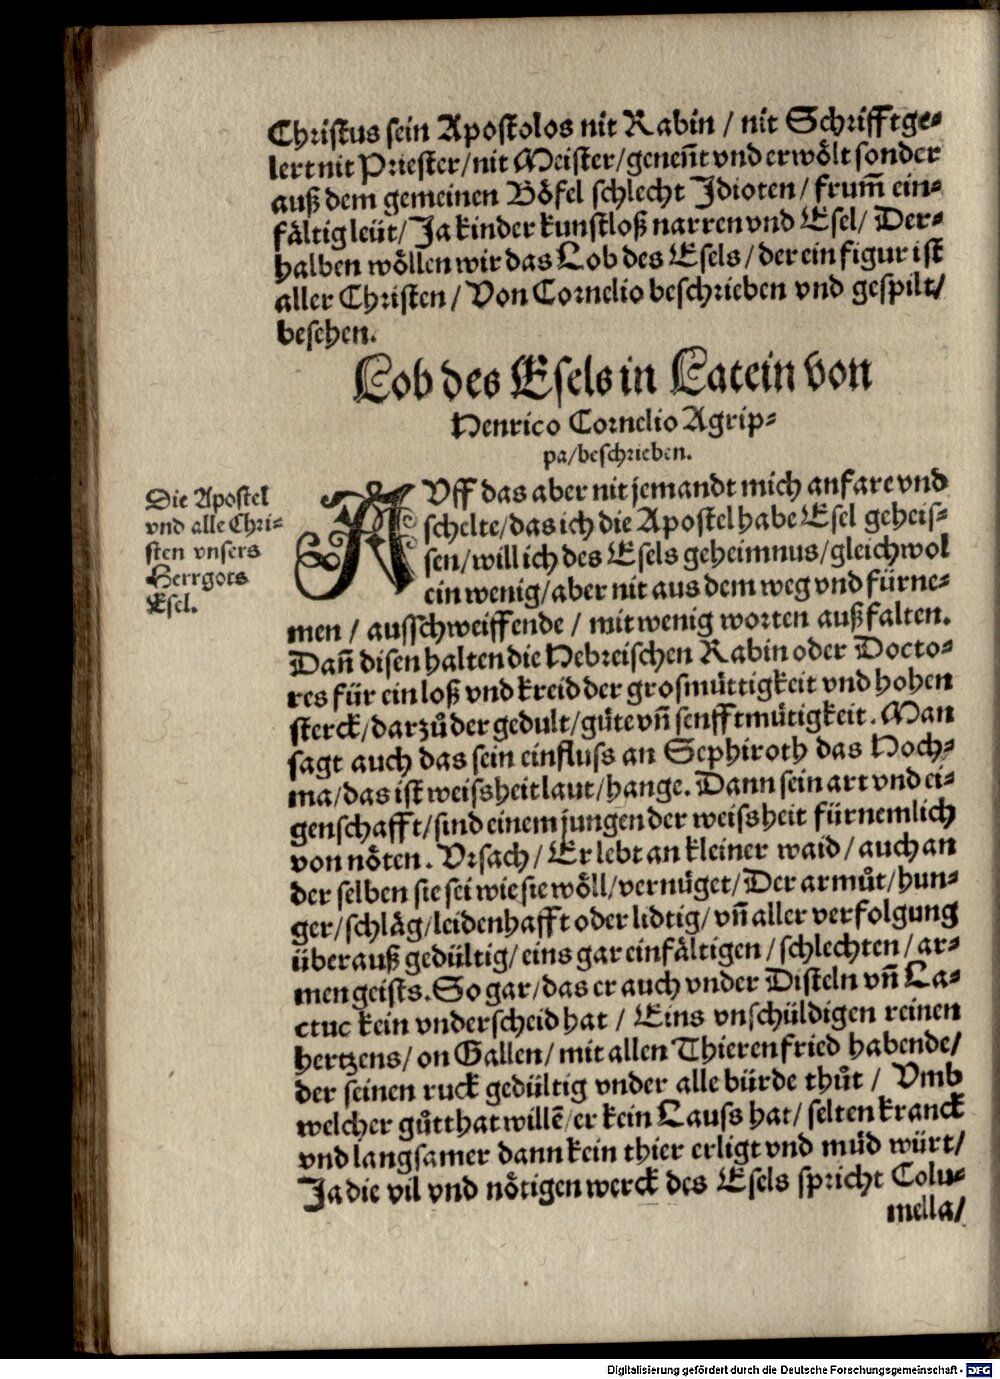 Christus sein Apostolos nit Rabin / nit Schrifftge-
lert nit Priester / nit Meister / geneñt vnd erwölt sonder
auß dem gemeinen Böfel schlecht Idioten / frum̃ ein-
fältig leüt / Ja kinder kunstloß narren vnd Esel / Der-
halben wöllen wir das Lob des Esels / der ein figur ist
aller Christen / Von Cornelio beschrieben vnd gespilt /
besehen.
Lob des Esels in Latein von
Henrico Cornelio Agrip-
pa / beschrieben.
Die Apostel
vnd alle Chri-
sten vnsers
Herrgots
Esel.
AVff das aber nit jemandt mich anfare vnd
schelte / das ich die Apostel habe Esel geheis-
sen / will ich des Esels geheimnus / gleichwol
ein wenig / aber nit aus dem weg vnd fürne-
men / ausschweiffende / mit wenig worten auß falten.
Dañ disen halten die Hebreischen Rabin oder Docto-
res für ein loß vnd kreid der grosmüttigkeit vnd hohen
sterck / darzů der gedult / güte vñ senfftmütigkeit. Man
sagt auch das sein einfluss an Sephiroth das Hoch-
ma / das ist weissheit laut / hange. Dann sein art vnd ei-
genschafft / sind einem jungen der weissheit fürnemlich
von nöten. Vrsach / Er lebt an kleiner waid / auch an
der selben sie sei wie sie wöll / vernüget / Der armůt / hun-
ger / schläg / leidenhafft oder lidtig / vñ aller verfolgung
über auß gedültig / eins gar einfältigen / schlechten / ar-
men geists. So gar / das er auch vnder Disteln vñ La-
ctuc kein vnderscheid hat / Eins vnschüldigen reinen
hertzens / on Gallen / mit allen Thieren fried habende /
der seinen ruck gedültig vnder alle bürde thůt / Vmb
welcher gůtthat willẽ / er kein Lauss hat / selten kranck
vnd langsamer dann kein thier erligt vnd müd würt /
Ja die vil vnd nötigen werck des Esels spricht Colu-
mella /
Digitalisierung gefördert durch die Deutsche Forschungsgemeinschaft - DFG